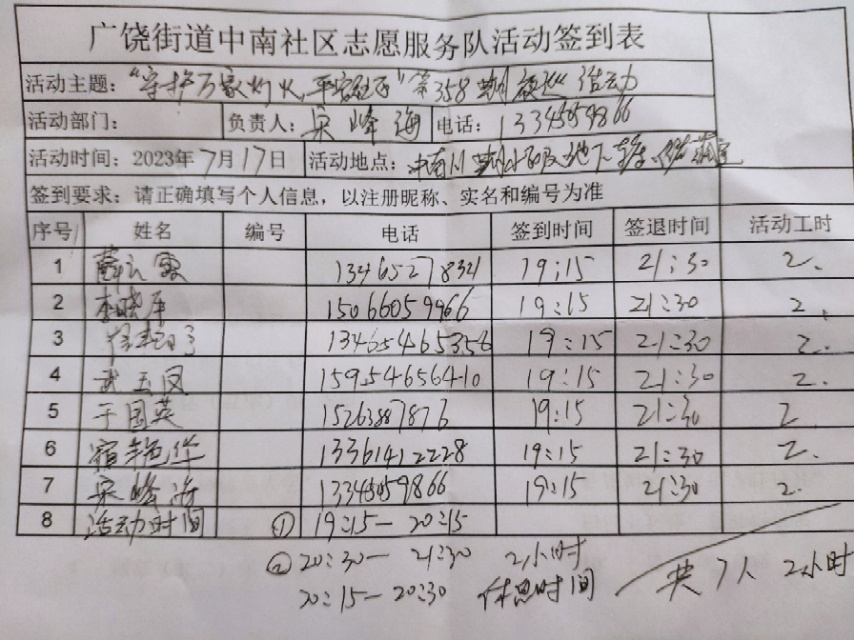 广饶街道中南社区志愿服务队活动签到表
活动主题：“守护万家灯火，平安社区”第358期夜巡活动
活动部门： 负责人：吴峰海 电话：13345059866
活动时间：2023年7月17日 活动地点：中南 地下
签到要求：请正确填写个人信息，以注册昵称、实名和编号为准
序号 姓名 编号 电话 签到时间 签退时间 活动工时
1 13465278321 19:15 21:30 2.
2 李晓军 15066059966 19:15 21:30 2.
3 19:15 21:30 2.
4 武玉凤 15954656410 19:15 21:30 2.
5 于国英 15263887876 19:15 21:30 2
6 宿艳华 13361412228 19:15 21:30 2.
7 吴峰海 13345059866 19:15 21:30 2.
8 活动时间 ① 19:15－20:15
② 20:30－21:30 2小时
20:15－20:30 休息时间 共7人 2小时